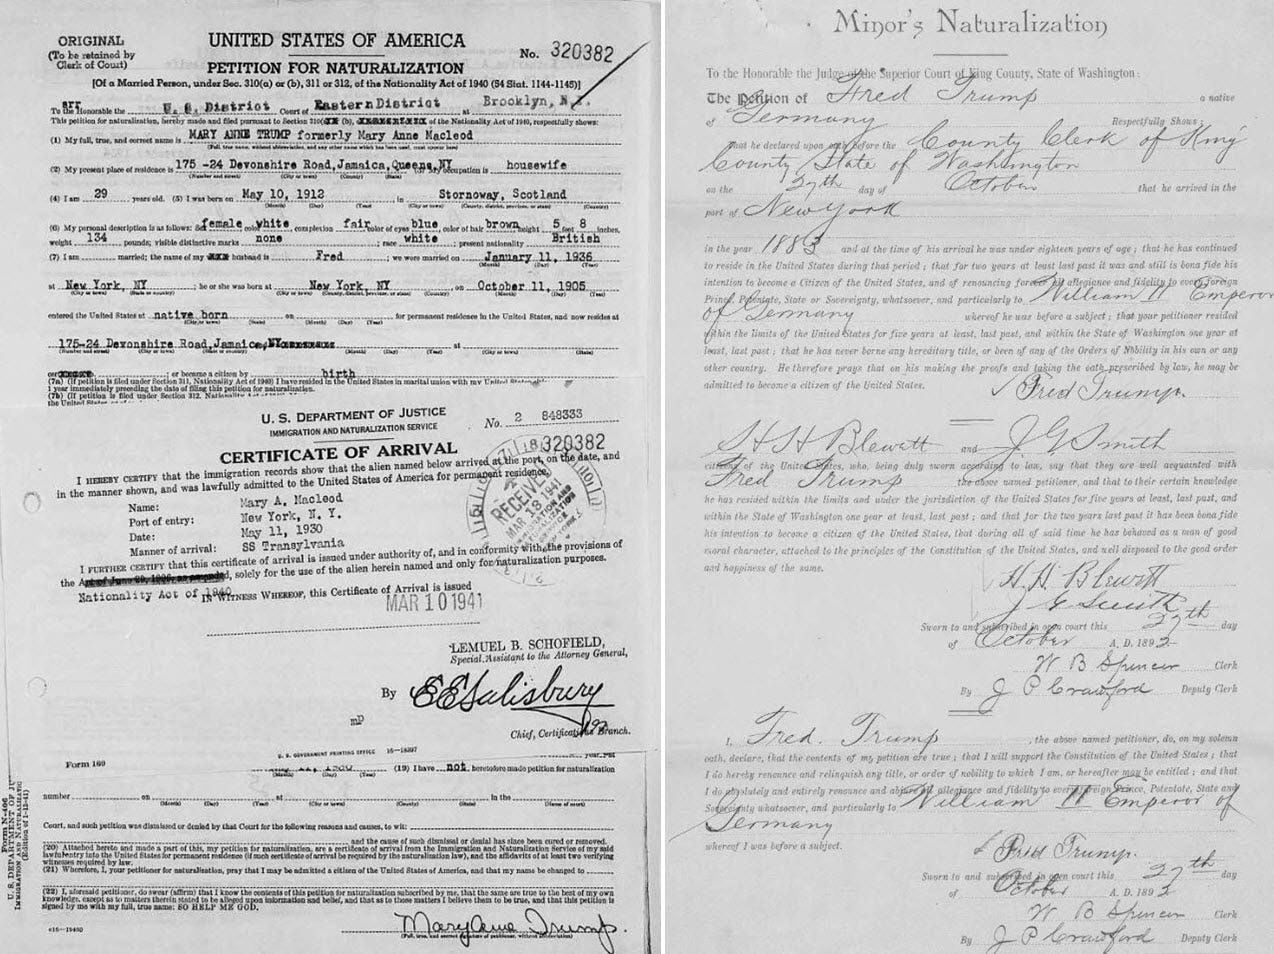 ORIGINAL
(To be retained by
Clerk of Court)
UNITED STATES OF AMERICA
No. 320382
PETITION FOR NATURALIZATION
[Of a Married Person, under Sec. 310(a) or (b), 311 or 312, of the Nationality Act of 1940 (54 Stat. 1144-1145)]
To the Honorable the U. S. District Court of Eastern District Brooklyn, N.Y.
This petition for naturalization, hereby made and filed pursuant to Section 310 (b), of the Nationality Act of 1940, respectfully shows:
(1) My full, true, and correct name is MARY ANNE TRUMP formerly Mary Anne Macleod
(2) My present place of residence is 175 -24 Devonshire Road, Jamaica, Queens, NY My occupation is housewife
(Number and street) (City or town) (County) (State)
(4) I am 29 years old. (5) I was born on May 10, 1912 in Stornoway, Scotland
(Month) (Day) (Year) (City or town) (County, district, province, or state) (Country)
(6) My personal description is as follows: Sex female color white complexion fair color of eyes blue color of hair brown height 5 feet 8 inches,
weight 134 pounds; visible distinctive marks none; race white; present nationality British
(7) I am married; the name of my husband is Fred; we were married on January 11, 1936
(Month) (Day) (Year)
at New York, NY; he or she was born at New York, NY, on October 11, 1905
(City or town) (State or country) (City or town) (Month) (Day) (Year)
entered the United States at native born on for permanent residence in the United States, and now resides at
(City or town) (State) (Month) (Day) (Year)
175-24 Devonshire Road, Jamaica, NY
(Number and street) (City or town) (Month) (Day) (Year) (City or town) (State)
; or became a citizen by birth
(7a) (If petition is filed under Section 311, Nationality Act of 1940) I have resided in the United States in marital union with my United States
1 year immediately preceding the date of filing this petition for naturalization.
(7b) (If petition is filed under Section 312, Nationality
the United States
U. S. DEPARTMENT OF JUSTICE
IMMIGRATION AND NATURALIZATION SERVICE
No. 2 848333
320382
CERTIFICATE OF ARRIVAL
I HEREBY CERTIFY that the immigration records show that the alien named below arrived at the port, on the date, and
in the manner shown, and was lawfully admitted to the United States of America for permanent residence.
Name: Mary A. Macleod
Port of entry: New York, N. Y.
Date: May 11, 1930
Manner of arrival: SS Transylvania
RECEIVED
MAR 18 1941
I FURTHER CERTIFY that this certificate of arrival is issued under authority of, and in conformity with, the provisions of
the Act of June 29, 1906, as amended, solely for the use of the alien herein named and only for naturalization purposes.
Nationality Act of 1940
IN WITNESS WHEREOF, this Certificate of Arrival is issued
MAR 10 1941
LEMUEL B. SCHOFIELD,
Special Assistant to the Attorney General,
By E E Salisbury
mp
Chief, Certifications Branch.
U. S. GOVERNMENT PRINTING OFFICE 16-18397
Form 160
(Month) (Day) (Year) (19) I have not heretofore made petition for naturalization
number on at in the
(Month) (Day) (Year) (City or town) (County) (State) (Name of court)
Court, and such petition was dismissed or denied by that Court for the following reasons and causes, to wit:
and the cause of such dismissal or denial has since been cured or removed.
(20) Attached hereto and made a part of this, my petition for naturalization, are a certificate of arrival from the Immigration and Naturalization Service of my said
lawful entry into the United States for permanent residence (if such certificate of arrival be required by the naturalization law), and the affidavits of at least two verifying
witnesses required by law.
(21) Wherefore, I, your petitioner for naturalization, pray that I may be admitted a citizen of the United States of America, and that my name be changed to
(22) I, aforesaid petitioner, do swear (affirm) that I know the contents of this petition for naturalization subscribed by me, that the same are true to the best of my own
knowledge, except as to matters therein stated to be alleged upon information and belief, and that as to those matters I believe them to be true, and that this petition is
signed by me with my full, true name: SO HELP ME GOD.
Mary Anne Trump.
Form N-406
U. S. DEPARTMENT OF JU
IMMIGRATION AND NATURALIZATIO
(Edition of 1-13-41)
Minor's Naturalization
To the Honorable the Judge of the Superior Court of King County, State of Washington:
The Petition of Fred Trump a native
of Germany Respectfully Shows:
That he declared upon oath before the County Clerk of King
County State of Washington
on the 27th day of October that he arrived in the
port of New York
in the year 1883 and at the time of his arrival he was under eighteen years of age; that he has continued
to reside in the United States during that period; that for two years at least last past it was and still is bona fide his
intention to become a Citizen of the United States, and of renouncing forever all allegiance and fidelity to every Foreign
Prince, Potentate, State or Sovereignty, whatsoever, and particularly to William II Emperor
of Germany whereof he was before a subject; that your petitioner resided
within the limits of the United States for five years at least, last past, and within the State of Washington one year at
least, last past; that he has never borne any hereditary title, or been of any of the Orders of Nobility in his own or any
other country. He therefore prays that on his making the proofs and taking the oath prescribed by law, he may be
admitted to become a citizen of the United States.
Fred Trump.
H H Blewett and J G Smith
citizens of the United States, who, being duly sworn according to law, say that they are well acquainted with
Fred Trump the above named petitioner, and that to their certain knowledge
he has resided within the limits and under the jurisdiction of the United States for five years at least, last past, and
within the State of Washington one year at least, last past; and that for the two years last past it has been bona fide
his intention to become a citizen of the United States, that during all of said time he has behaved as a man of good
moral character, attached to the principles of the Constitution of the United States, and well disposed to the good order
and happiness of the same.
H. H. Blewett
J G Smith
Sworn to and subscribed in open court this 27th day
of October A. D. 1892
W B Spencer Clerk
By J P Crawford Deputy Clerk
I, Fred. Trump, the above named petitioner, do, on my solemn
oath, declare, that the contents of my petition are true; that I will support the Constitution of the United States; that
I do hereby renounce and relinquish any title, or order of nobility to which I am, or hereafter may be entitled; and that
I do absolutely and entirely renounce and abjure all allegiance and fidelity to every foreign Prince, Potentate, State and
Sovereignty whatsoever, and particularly to William II Emperor of
Germany
whereof I was before a subject.
Fred Trump.
Sworn to and subscribed in open court this 27th day
of October A. D. 1892
W B Spencer Clerk
By J P Crawford Deputy Clerk